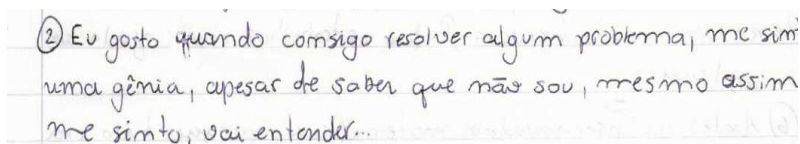 ② Eu gosto quando consigo resolver algum problema, me sin
uma gênia, apesar de saber que não sou, mesmo assim
me sinto, vai entender...